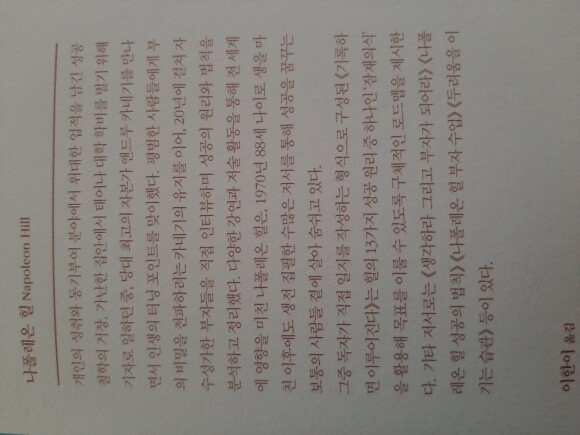 나폴레온 힐 Napoleon Hill
개인의 성취와 동기부여 분야에서 위대한 업적을 남긴 성공
철학의 거장. 가난한 집안에서 태어나 대학 학비를 벌기 위해
기자로 일하던 중, 당대 최고의 자본가 앤드루 카네기를 만나
면서 인생의 터닝 포인트를 맞이했다. 평범한 사람들에게 부
의 비밀을 전파하라는 카네기의 유지를 이어, 20년에 걸쳐 자
수성가한 부자들을 직접 인터뷰하며 성공의 원리와 법칙을
분석하고 정리했다. 다양한 강연과 저술 활동을 통해 전 세계
에 영향을 미친 나폴레온 힐은, 1970년 88세 나이로 생을 마
친 이후에도 생전 집필한 수많은 저서를 통해 성공을 꿈꾸는
보통의 사람들 곁에 살아 숨쉬고 있다.
그중 독자가 직접 일지를 작성하는 형식으로 구성된 《기록하
면 이루어진다》는 힐의 13가지 성공 원리 중 하나인 ‘잠재의식’
을 활용해 목표를 이룰 수 있도록 구체적인 로드맵을 제시한
다. 기타 저서로는 《생각하라 그리고 부자가 되어라》 《나폴
레온 힐 성공의 법칙》 《나폴레온 힐 부자 수업》 《두려움을 이
기는 습관》 등이 있다.
이한이 옮김